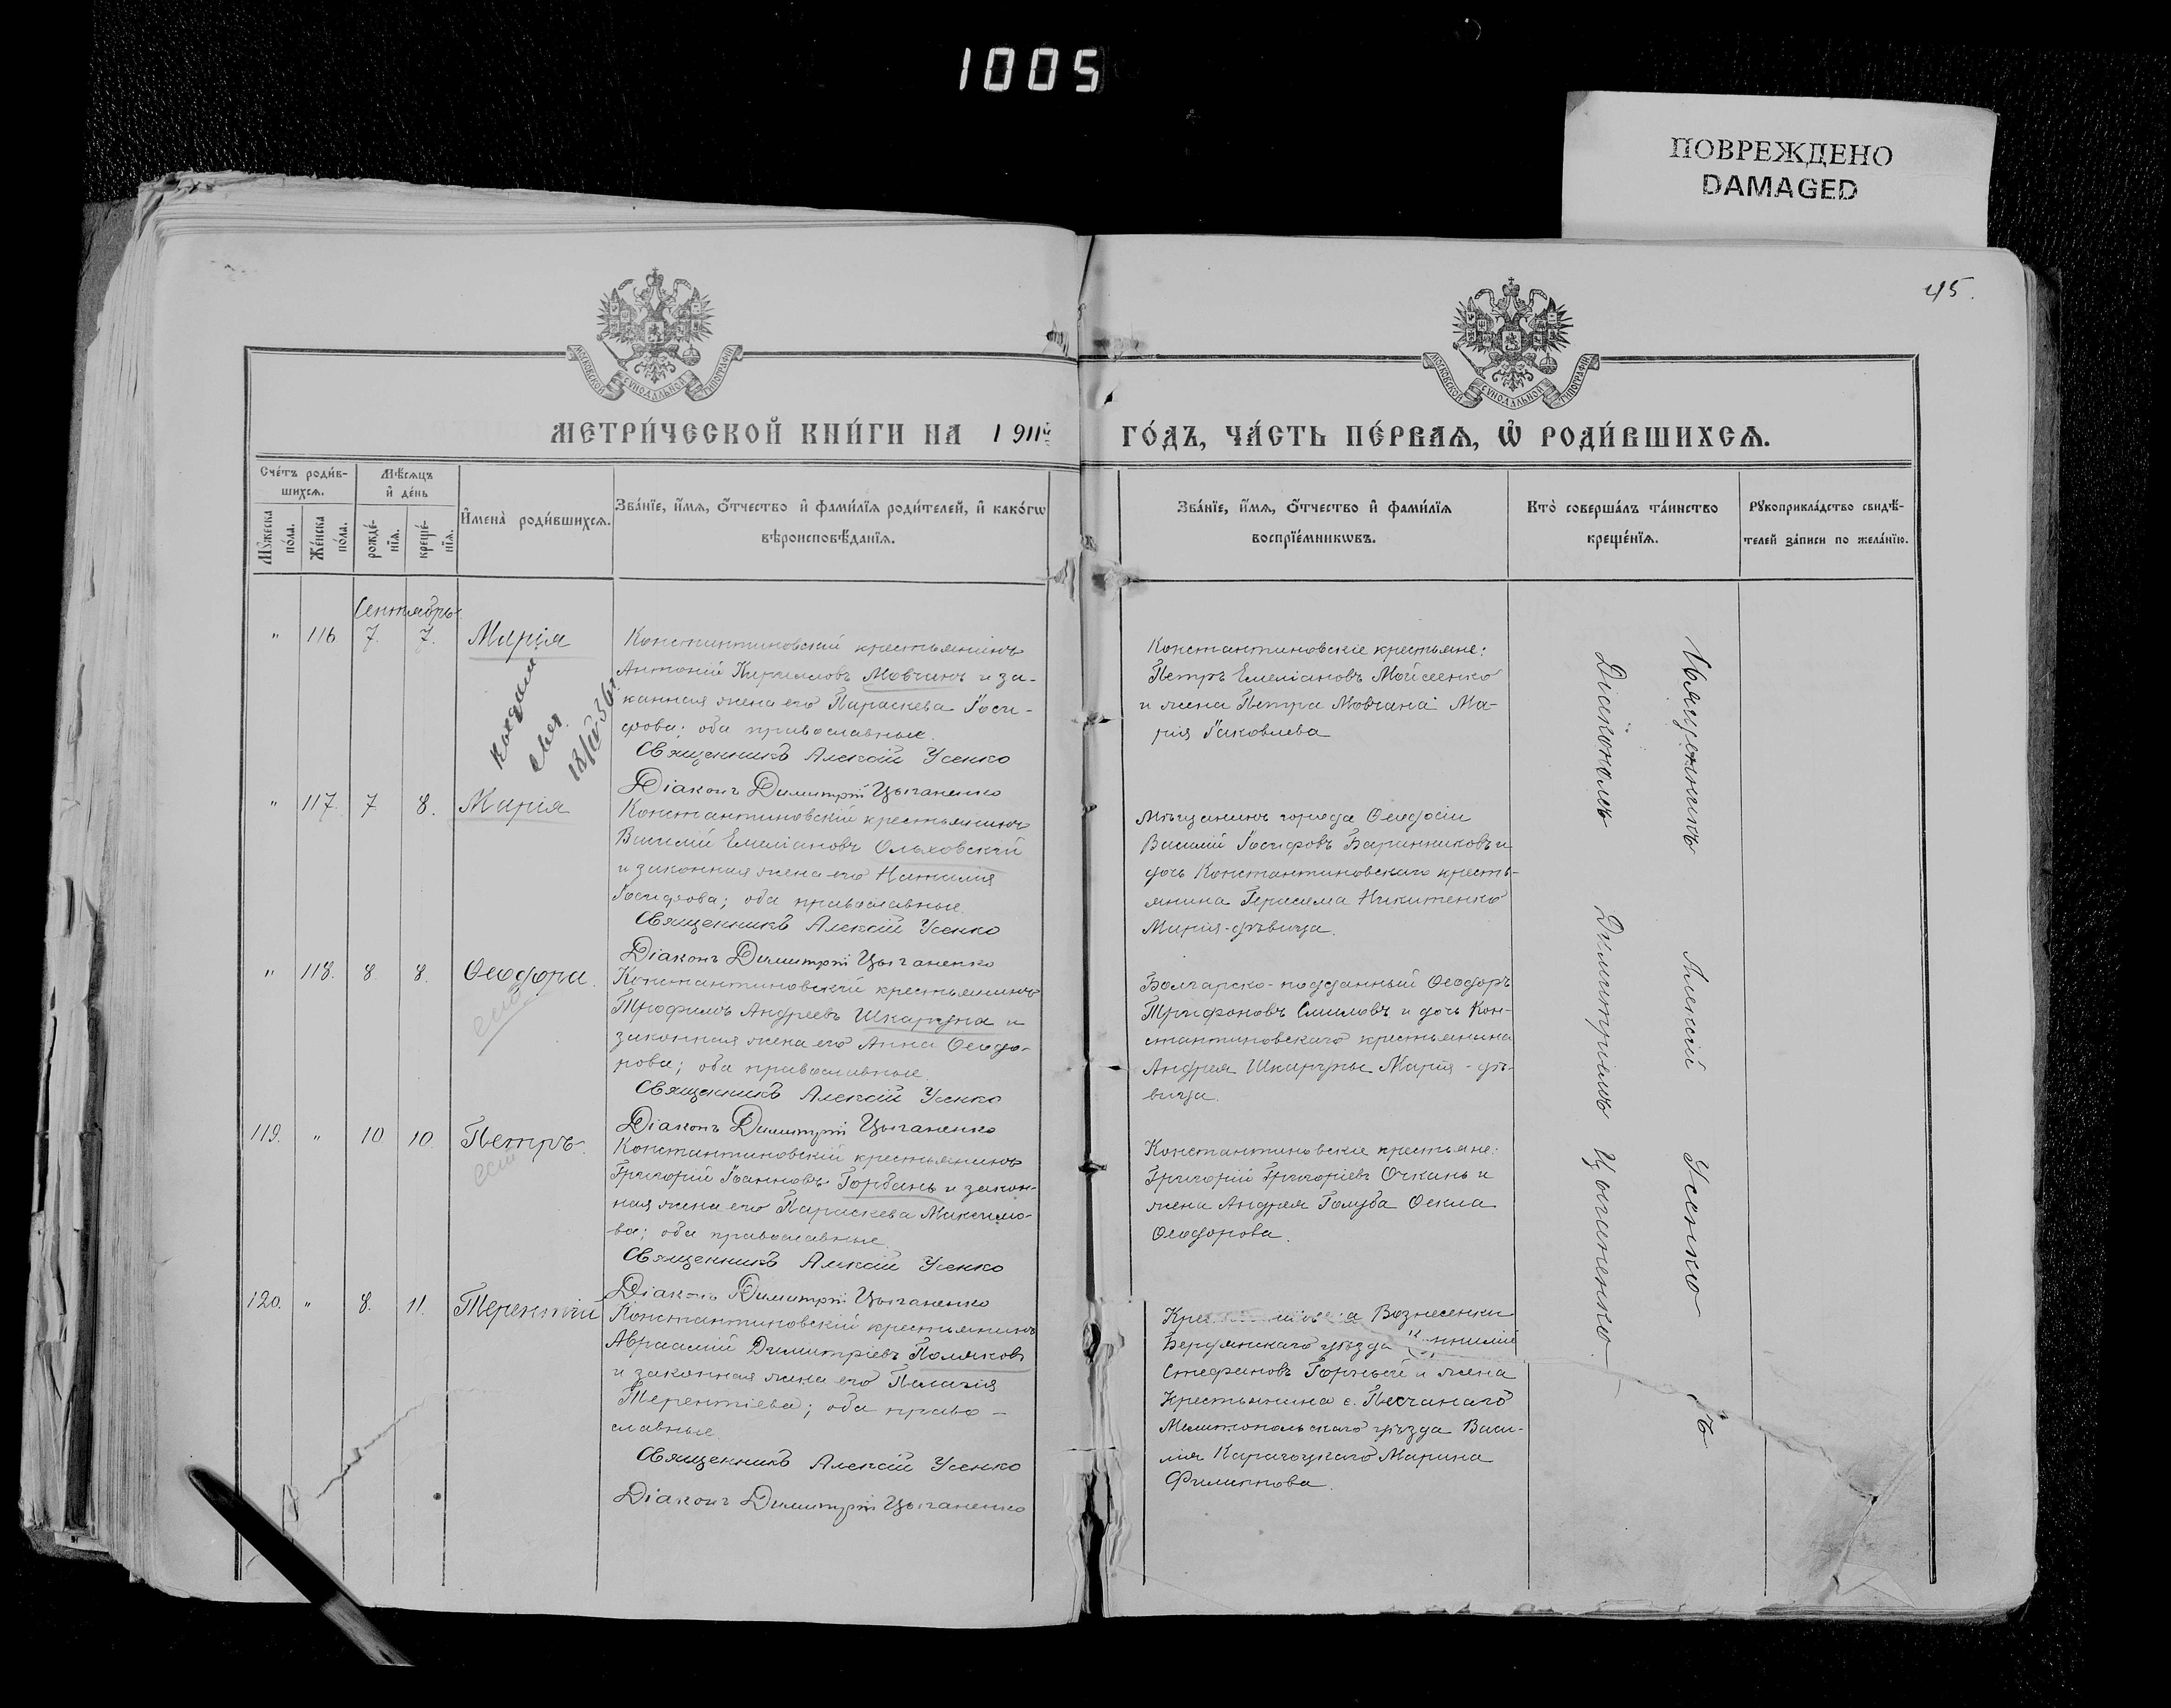 1005
ПОВРЕЖДЕНО
DAMAGED
45.
МОСКОВСКОЙ СѴНОДАЛЬНОЙ ТИПОГРАФІИ
МОСКОВСКОЙ СѴНОДАЛЬНОЙ ТИПОГРАФІИ
МЕТРИ́ЧЕСКОЙ КНИ́ГИ НА 1911й
ГО́ДЪ, ЧА́СТЬ ПЕ́РВАѦ, Ѡ РОДИ́ВШИХСѦ.
Сче́тъ роди́в-
шихсѧ.
Мѣ́сѧцъ
и҆ де́нь
Мꙋ́жеска
по́ла.
Же́нска
по́ла.
рожде́-
нїѧ.
креще́-
нїѧ.
И҆мена̀ роди́вшихсѧ.
Зва́нїе, и҆́мѧ, ѻ҆́тчество и҆ фами́лїѧ роди́телей, и҆ како́гѡ
вѣроисповѣ́данїѧ.
Зва́нїе, и҆́мѧ, ѻ҆́тчество и҆ фами́лїѧ
воспрїе́мникѡвъ.
Кто̀ соверша́лъ та́инство
креще́нїѧ.
Рꙋкоприкла́дство свидѣ́-
телей за́писи по жела́нїю.
Сентябрь
" 116. 7. 7. Марія
Константиновскій крестьянинъ
Антоній Кирилловъ Мовчанъ и за-
конная жена его Параскева Іоси-
фова; оба православные.
Священникъ Алексій Усенко
Діаконъ Димитрій Цыганенко
Константиновскіе крестьяне:
Петръ Емеліановъ Мойсеенко
и жена Петра Мовчана Ма-
рія Іаковлева
" 117. 7 8. Марія
Константиновскій крестьянинъ
Василій Емеліановъ Ольховскій
и законная жена его Наталія
Іосифова; оба православные.
Священникъ Алексій Усенко
Діаконъ Димитрій Цыганенко
Мѣщанинъ города Ѳеодосіи
Василій Іосифовъ Баранниковъ и
дочь Константиновскаго кресть-
янина Герасима Никитенко
Марія-дѣвица.
" 118. 8 8. Ѳеодора.
Константиновскій крестьянинъ
Трофимъ Андреевъ Шкарупа и
законная жена его Анна Ѳеодо-
рова; оба православные.
Священникъ Алексій Усенко
Діаконъ Димитрій Цыганенко
Болгарско-подданный Ѳеодоръ
Трифоновъ и дочь Кон-
стантиновскаго крестьянина
Андрея Шкарупы Марія - дѣ-
вица.
119. " 10 10. Петръ.
Константиновскій крестьянинъ
Григорій Іоанновъ Горбань и закон-
ная жена его Параскева Максимо-
ва; оба православные.
Священникъ Алексій Усенко
Діаконъ Димитрій Цыганенко
Константиновскіе крестьяне:
Григорій Григоріевъ Очкань и
жена Андрея Голуба Ѳекла
Ѳеодорова.
120. " 8. 11. Терентій
Константиновскій крестьянинъ
Авраамій Димитріевъ Поляковъ
и законная жена его Пелагія
Терентіева; оба право-
славные.
Священникъ Алексій Усенко
Діаконъ Димитрій Цыганенко
Вознесенки
Бердянскаго уѣзда
Стефановъ Горный и жена
Крестьянина с. Песчанаго
Мелитопольскаго уѣзда Васи-
лія Марина
Филиппова.
Священникъ Алексій Усенко
Діакономъ Димитріемъ Цыганенко.